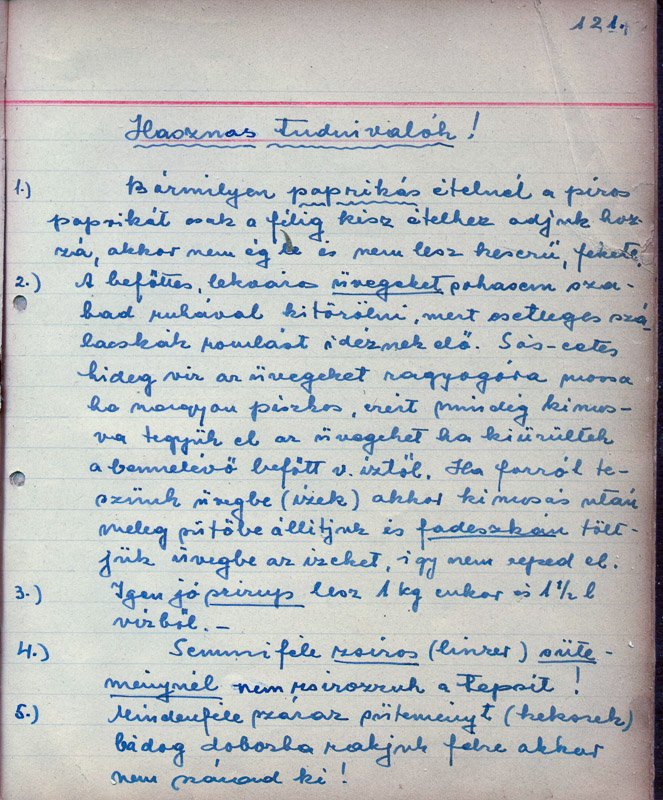 121.
Hasznos tudnivalók!
1.) Bármilyen paprikás ételnél a piros
paprikát csak a félig kész ételhez adjuk hoz-
zá, akkor nem ég le és nem lesz keserű, fekete.
2.) A befőttes, lekváros üvegeket sohasem sza-
bad ruhával kitörölni, mert esetleges szá-
lacskák romlást idéznek elő. Sós-ecetes
hideg víz az üvegeket ragyogóra mossa
ha nagyon piszkos, ezért mindig kimos-
va tegyük el az üvegeket ha kiürültek
a bennelévő befőtt v. íztől. Ha forról te-
szünk üvegbe (ízek) akkor kimosás után
meleg sütőbe állítjuk és fadeszkán tölt-
jük üvegbe az ízeket, így nem reped el.
3.) Igen jó szirup lesz 1 kg cukor és 1 1/2 l
vízből. -
4.) Semmiféle zsíros (linzer) süte-
ménynél nem zsírozzuk a tepsit!
5.) Mindenféle száraz süteményt (kekszek)
bádog dobozba rakjuk félre akkor
nem szárad ki!